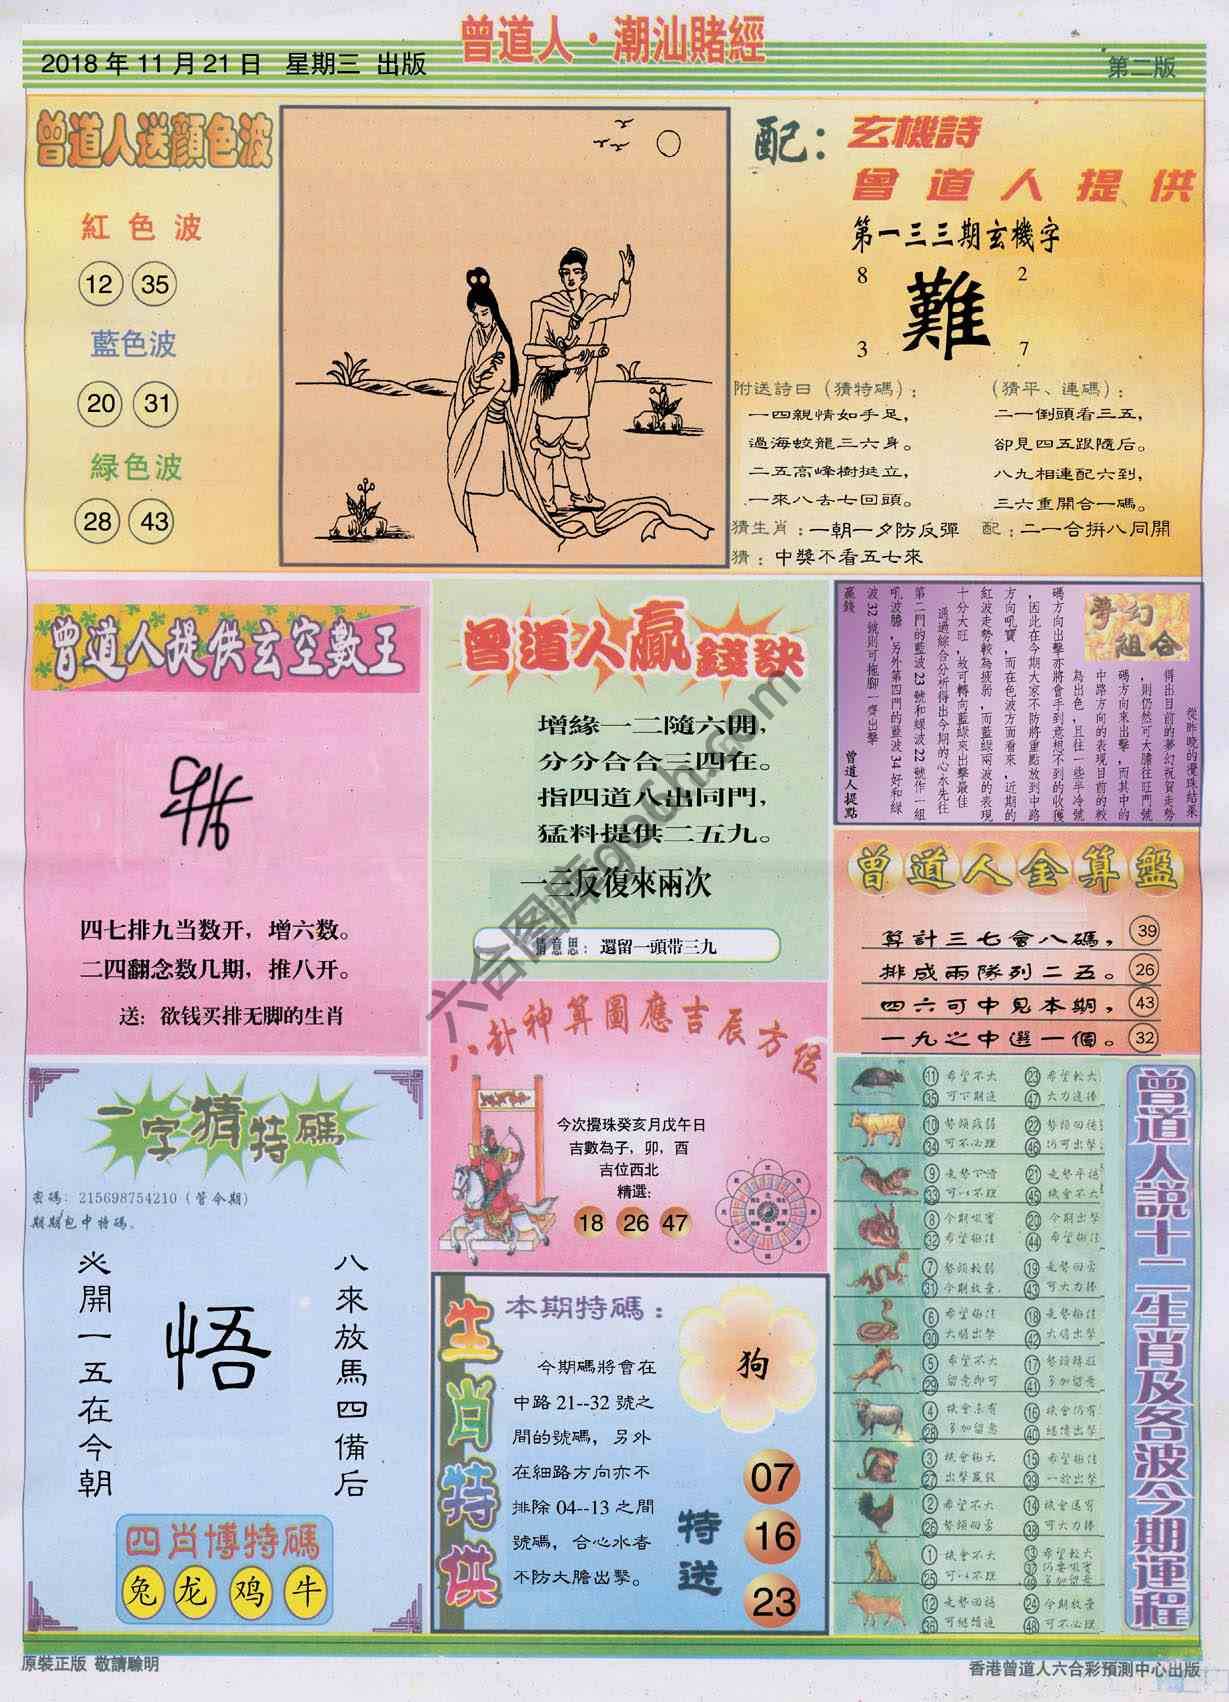 曾道人·潮汕賭經
2018年11月21日 星期三 出版
第二版
曾道人送顏色波
紅色波
12 35
藍色波
20 31
緑色波
28 43
配：
玄機詩
曾道人提供
第一三三期玄機字
8 2
難
3 7
附送詩曰（猜特碼）：
一四親情如手足，
過海蛟龍三六身。
二五高峰樹挺立，
一來八去七回頭。
（猜平、連碼）：
二一倒頭看三五，
卻見四五跟隨后。
八九相連配六到，
三六重開合一碼。
猜生肖：一朝一夕防反彈
配：二一合拚八同開
猜：中獎不看五七來
曾道人提供玄空數王
四七排九当数开，增六数。
二四翻念数几期，推八开。
送：欲钱买排无脚的生肖
曾道人贏錢訣
增緣一二隨六開，
分分合合三四在。
指四道八出同門，
猛料提供二五九。
一三反復來兩次
猜意思：還留一頭带三九
夢幻組合
從昨晚的攪珠結果
得出目前的夢幻祝賀走勢
，則仍然可大膽往旺門號
碼方向來出擊，而其中的
中路方向的表現目前的較
為出色，且往一些半冷號
碼方向出擊亦將會手到意想不到的收獲
，因此在今期大家不防將重點放到中路
方向吼寶，而在色波方面看來，近期的
紅波走勢較為疲弱，而藍綠兩波的表現
十分大旺，故可轉向藍綠來出擊最佳
通過綜合分析得出今期的心水先往
第二門的藍波23號和緑波22號作一組
吼波膽，另外第四門的藍波34好和綠
波32號則可拖腳一齊出擊
贏錢
曾道人提點
曾道人金算盤
算計三七會八碼， 39
排成兩隊列二五。 26
四六可中見本期， 43
一九之中選一個。 32
八卦神算圖應吉辰方位
今次攪珠癸亥月戊午日
吉數為子，卯，酉
吉位西北
精選：
18 26 47
一字猜特碼
密碼：215698754210（管今期）
期期包中特碼。
八來放馬四備后
悟
必開一五在今朝
四肖博特碼
兔 龙 鸡 牛
生肖特供
本期特碼：
今期碼將會在
中路21--32號之
間的號碼，另外
在細路方向亦不
排除04--13之間
號碼，合心水者
不防大膽出擊。
狗
特送
07
16
23
曾道人說十二生肖及各波今期運程
11 希望不大 23 希望較大
35 可下期追 47 大力追捧
10 勢頭疲弱 22 勢頭回穩
34 可不必理 46 仍可出擊
9 走勢下滑 21 走勢平穩
33 可以不理 45 機會不大
8 今期吸寶 20 今期出擊
32 希望極佳 44 希望極佳
7 勢頭較弱 19 走勢回勇
31 今期放棄 43 可大力捧
6 希望極佳 18 走勢極佳
30 大膽出擊 42 大膽出擊
5 希望不大 17
29 留意即可 41 多加留意
4 機會未有 16 機會仍有
28 多加留意 40 繼續出擊
3 機會極大 15 希望極佳
27 39 一於出擊
2 希望不大 14
26 勢頭回勇 38 可大力捧
1 機會不大 13 希望較大
25 可以不理
12 走勢回穩 24 今期放棄
36 可繼續追 48 可不必理
原裝正版 敬請驗明
香港曾道人六合彩預測中心出版
六合图库gaoch.com